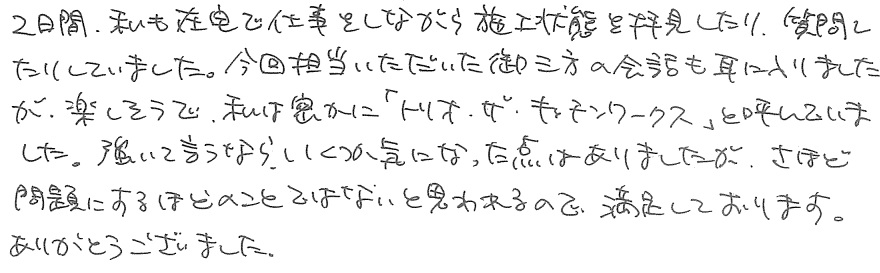 2日間、私も在宅で仕事をしながら施工状態を拝見したり、質問し
たりしていました。今回担当いただいた御三方の会話も耳に入りました
が、楽しそうで、私は密かに「トリオ・ザ・キッチンワークス」と呼んでいま
した。強いて言うなら、いくつか気になった点はありましたが、さほど
問題にするほどのことではないと思われるので、満足しております。
ありがとうございました。